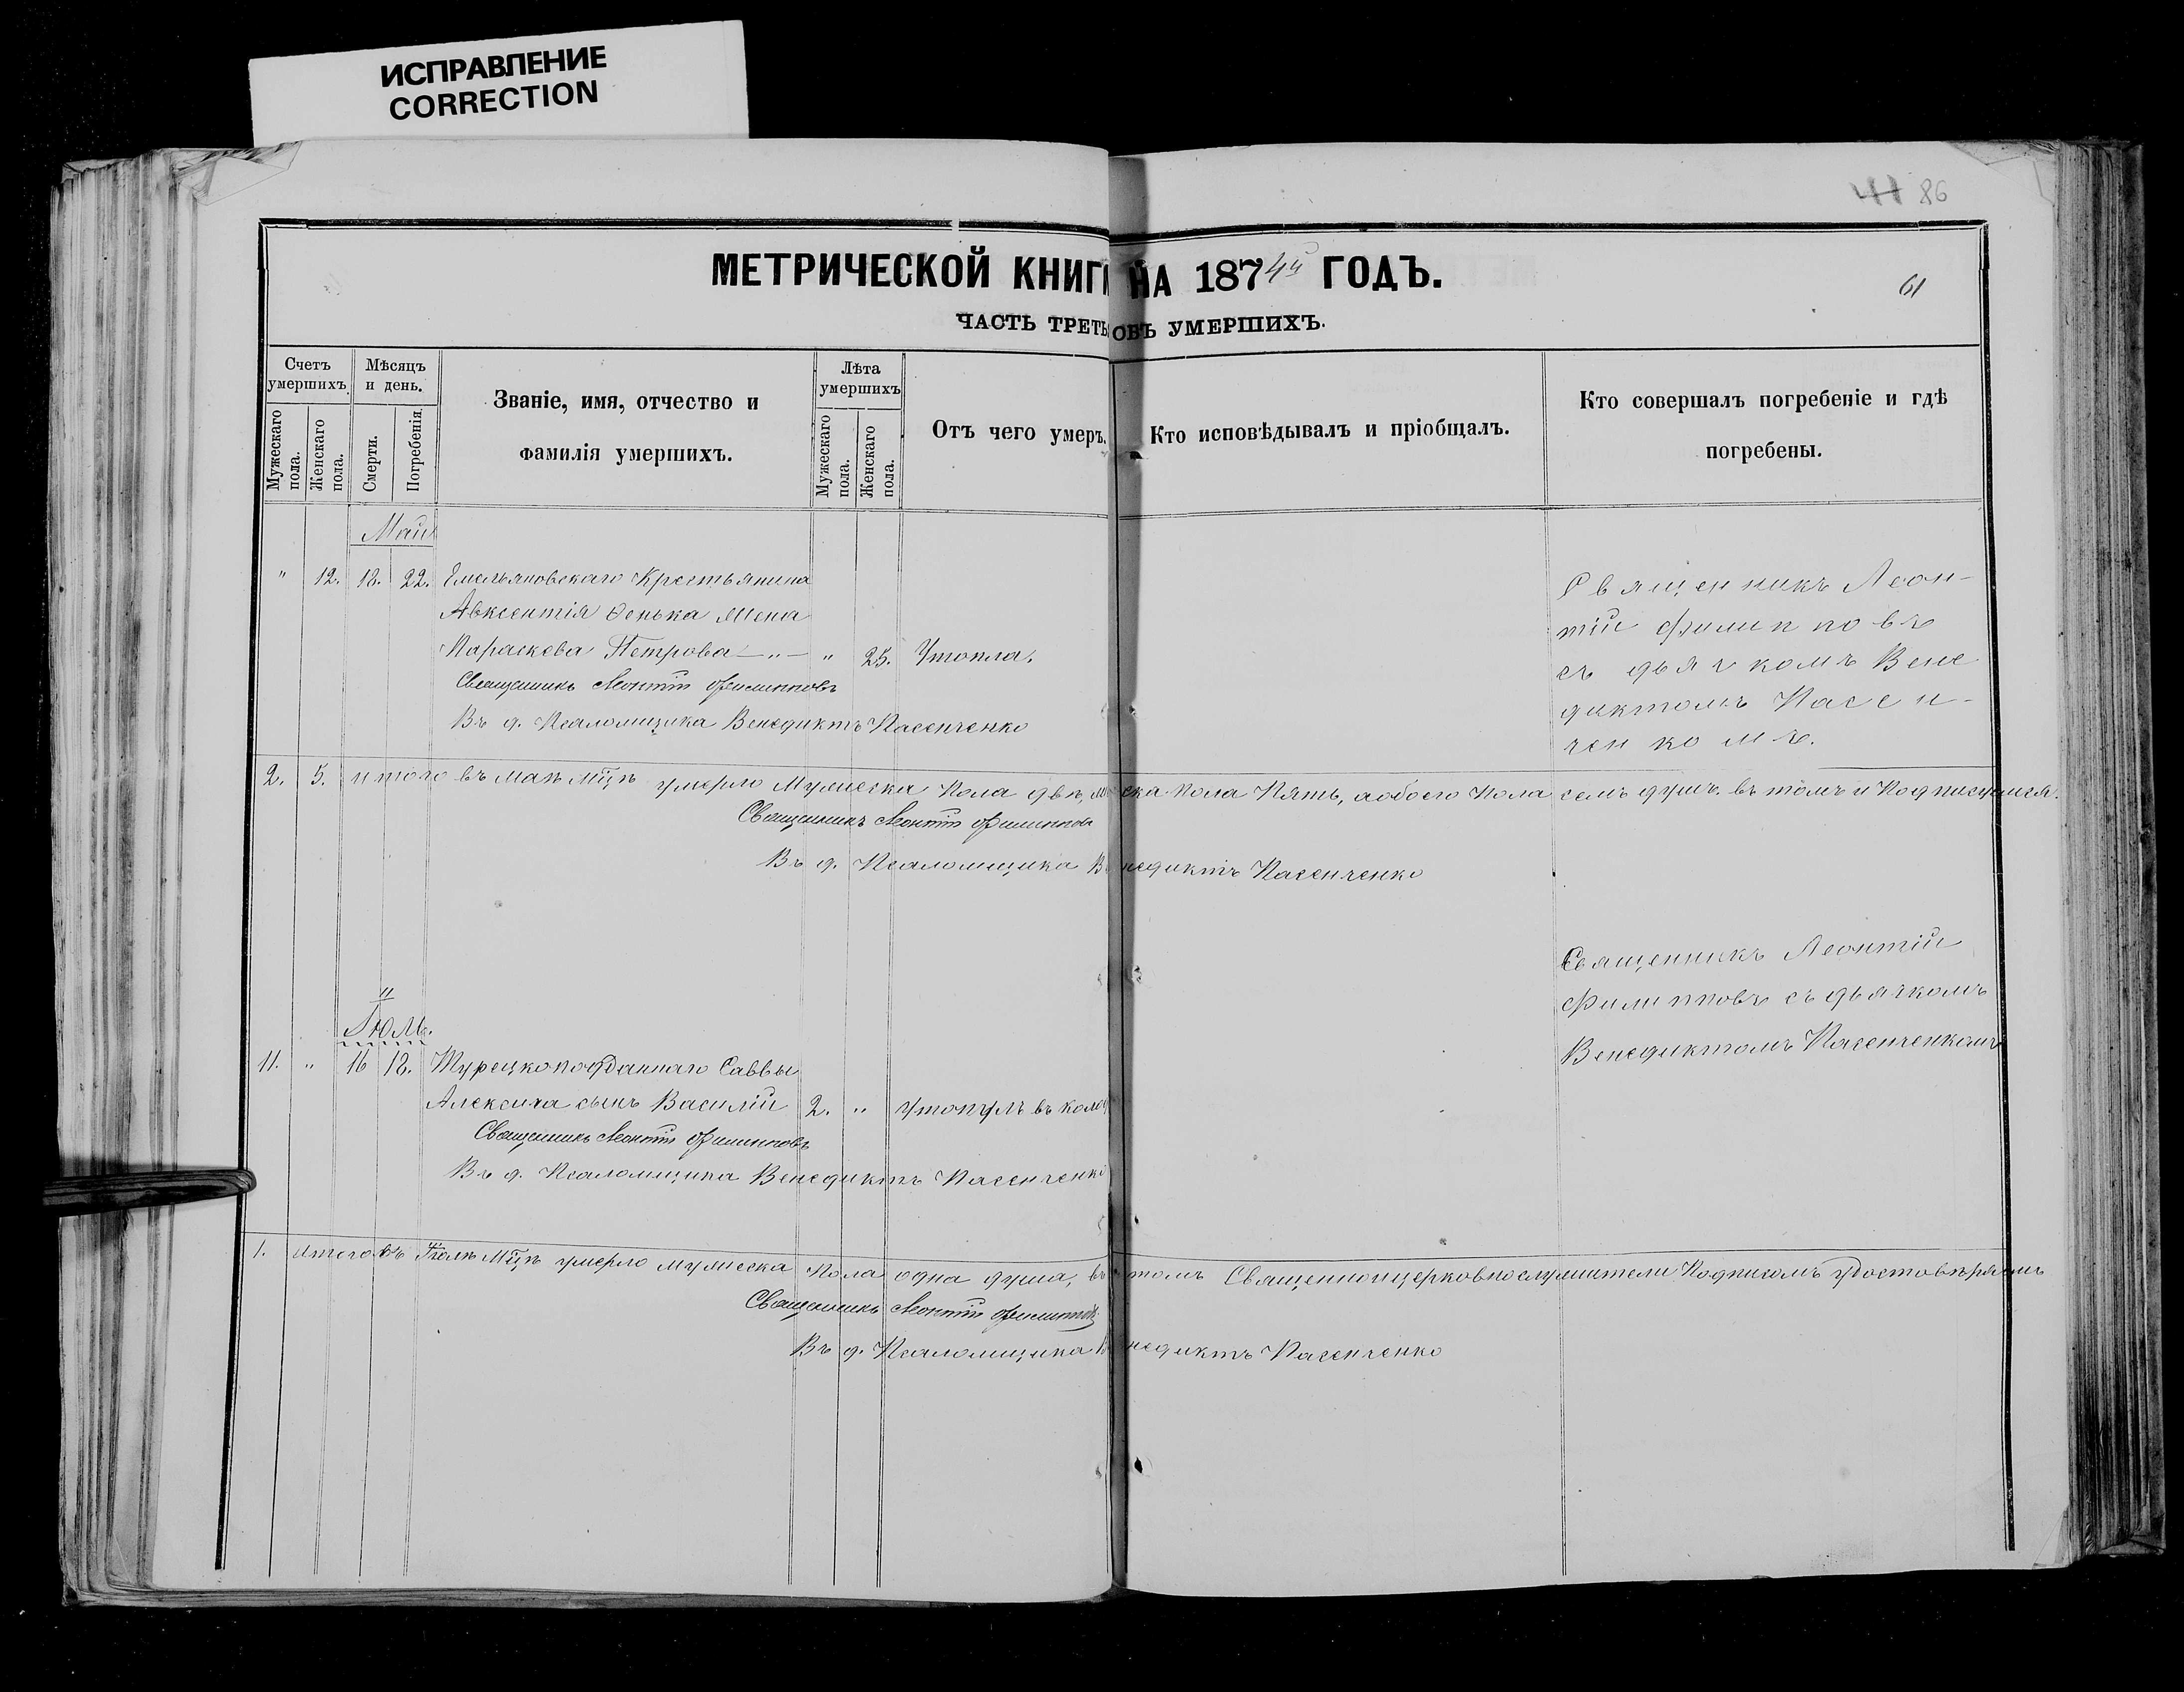 ИСПРАВЛЕНИЕ
CORRECTION
41 86
МЕТРИЧЕСКОЙ КНИГИ НА 1874й ГОДЪ.
61
ЧАСТЬ ТРЕТЬ ОБЪ УМЕРШИХЪ.
Счетъ умершихъ.
Мужескаго пола.
Женскаго пола.
Мѣсяцъ и день.
Смерти.
Погребенія.
Званіе, имя, отчество и
фамилія умершихъ.
Лѣта умершихъ
Мужескаго пола.
Женскаго пола.
Отъ чего умеръ.
Кто исповѣдывалъ и пріобщалъ.
Кто совершалъ погребеніе и гдѣ
погребены.
Май
" 12. 18. 22. Емельяновскаго Крестьянина
Авксентія Женa
Параскева Петрова —"— " 25. Утопла.
Священникъ Леонтій Филипповъ
Въ д. Псаломщика Венедиктъ Пасенченко
Священникъ Леон-
тій Филиповъ
съ дьячкомъ Вене
диктомъ Пасен-
ченкомъ.
2. 5. итого въ маѣ мцѣ умерло Мужеска Пола двѣ, ска пола Пять, а обоего Пола семь душъ, въ томъ и Подписуемся.
Священникъ Леонтій Филиппов
Въ д. Псаломщика Венедиктъ Пасенченко
Іюль.
11. " 16 18. Турецкоподданнаго Саввы
Алексича сынъ Василій 2. " утопулъ въ колод
Священникъ Леонтій Филипповъ
Въ д. Псаломщика Венедиктъ Пасенченко
Священникъ Леонтій
Филипповъ съ дьячкомъ
Венедиктомъ Пасенченкомъ
1. итого въ Іюлѣ Мцѣ умерло мужеска Пола одна душа, въ томъ Священноицерковнослужители Подписомъ удостовѣряемъ
Священникъ Леонтій Филипповъ
Въ д. Псаломщика Венедиктъ Пасенченко